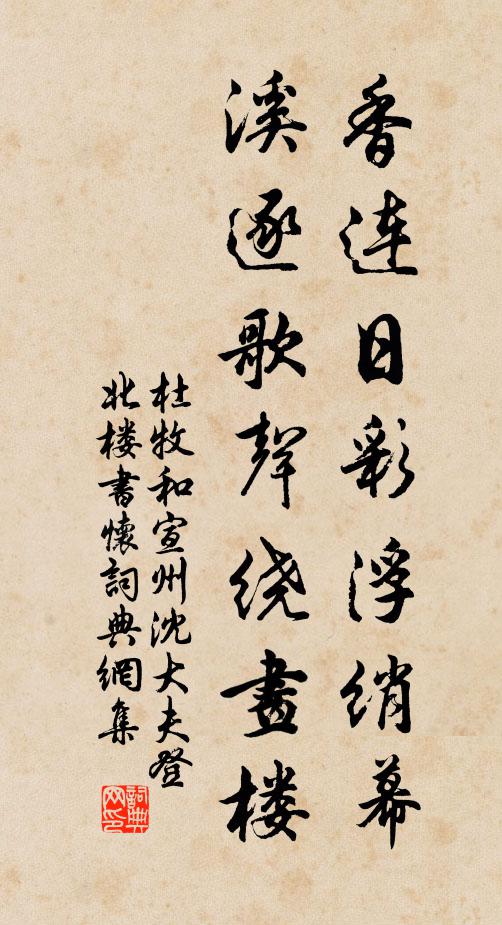 香連日彩浮綃幕
溪逐歌聲绕畫楼
杜牧和宣州沈大夫登
北楼書懷詞典網集
詞典
网印